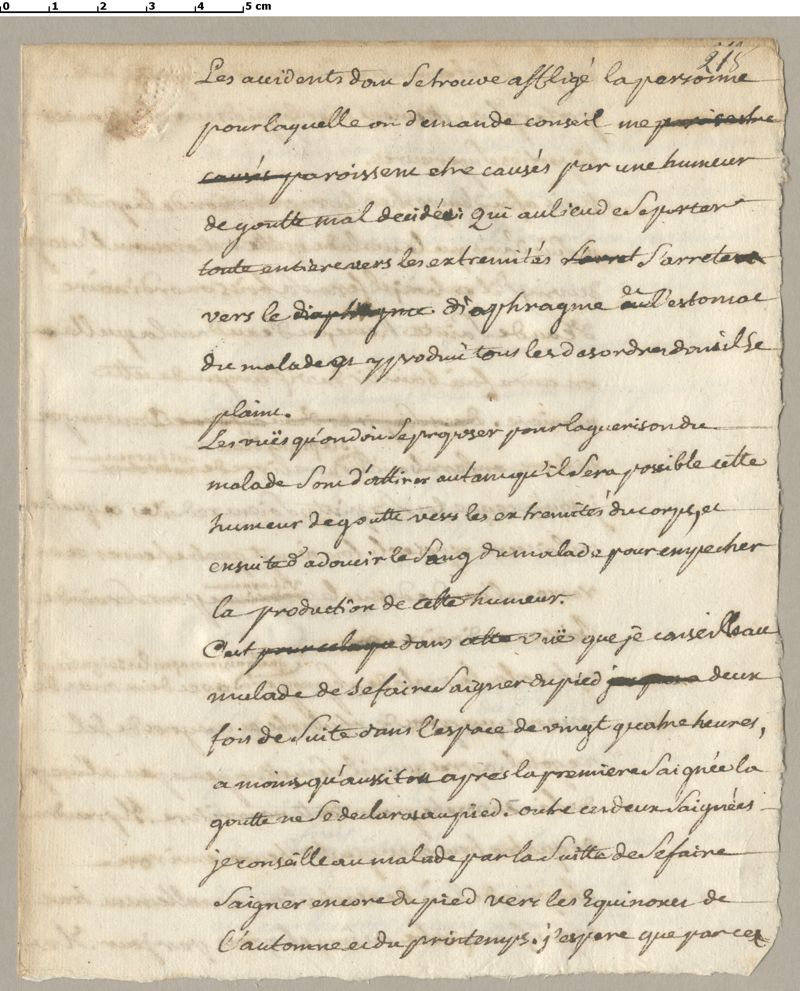 0 1 2 3 4 5 cm
218
Les accidents dont se trouve affligé la personne
pour laquelle on demande conseil me paroisestre
causés paroissent etre causés par une humeur
de goutte mal decidée: Qui au lieu de se porter
toute entiere vers les extremités s'arrete
vers le diaphragme diaphragme ou l'estomac
du malade et y produit tous les desordres dont il se
plaint.
Les vuës qu'on doit se proposer pour la guerison du
malade sont d'attirer autant qu'il sera possible cette
humeur de goutte vers les extremités du corps, et
ensuite d'adoucir le sang du malade pour empecher
la production de cette humeur.
C'est pour cela que dans cette vuë que je conseille au
malade de se faire saigner du pied deux
fois de suite dans l'espace de vingt quatre heures,
a moins qu'aussitou apres la premiere saignée la
goutte ne se declarat au pied. outre ces deux saignées
je conseille au malade par la suitte de se faire
saigner encore du pied vers les Equinoxes de
l'automne et du printemps. j'espere que par ces